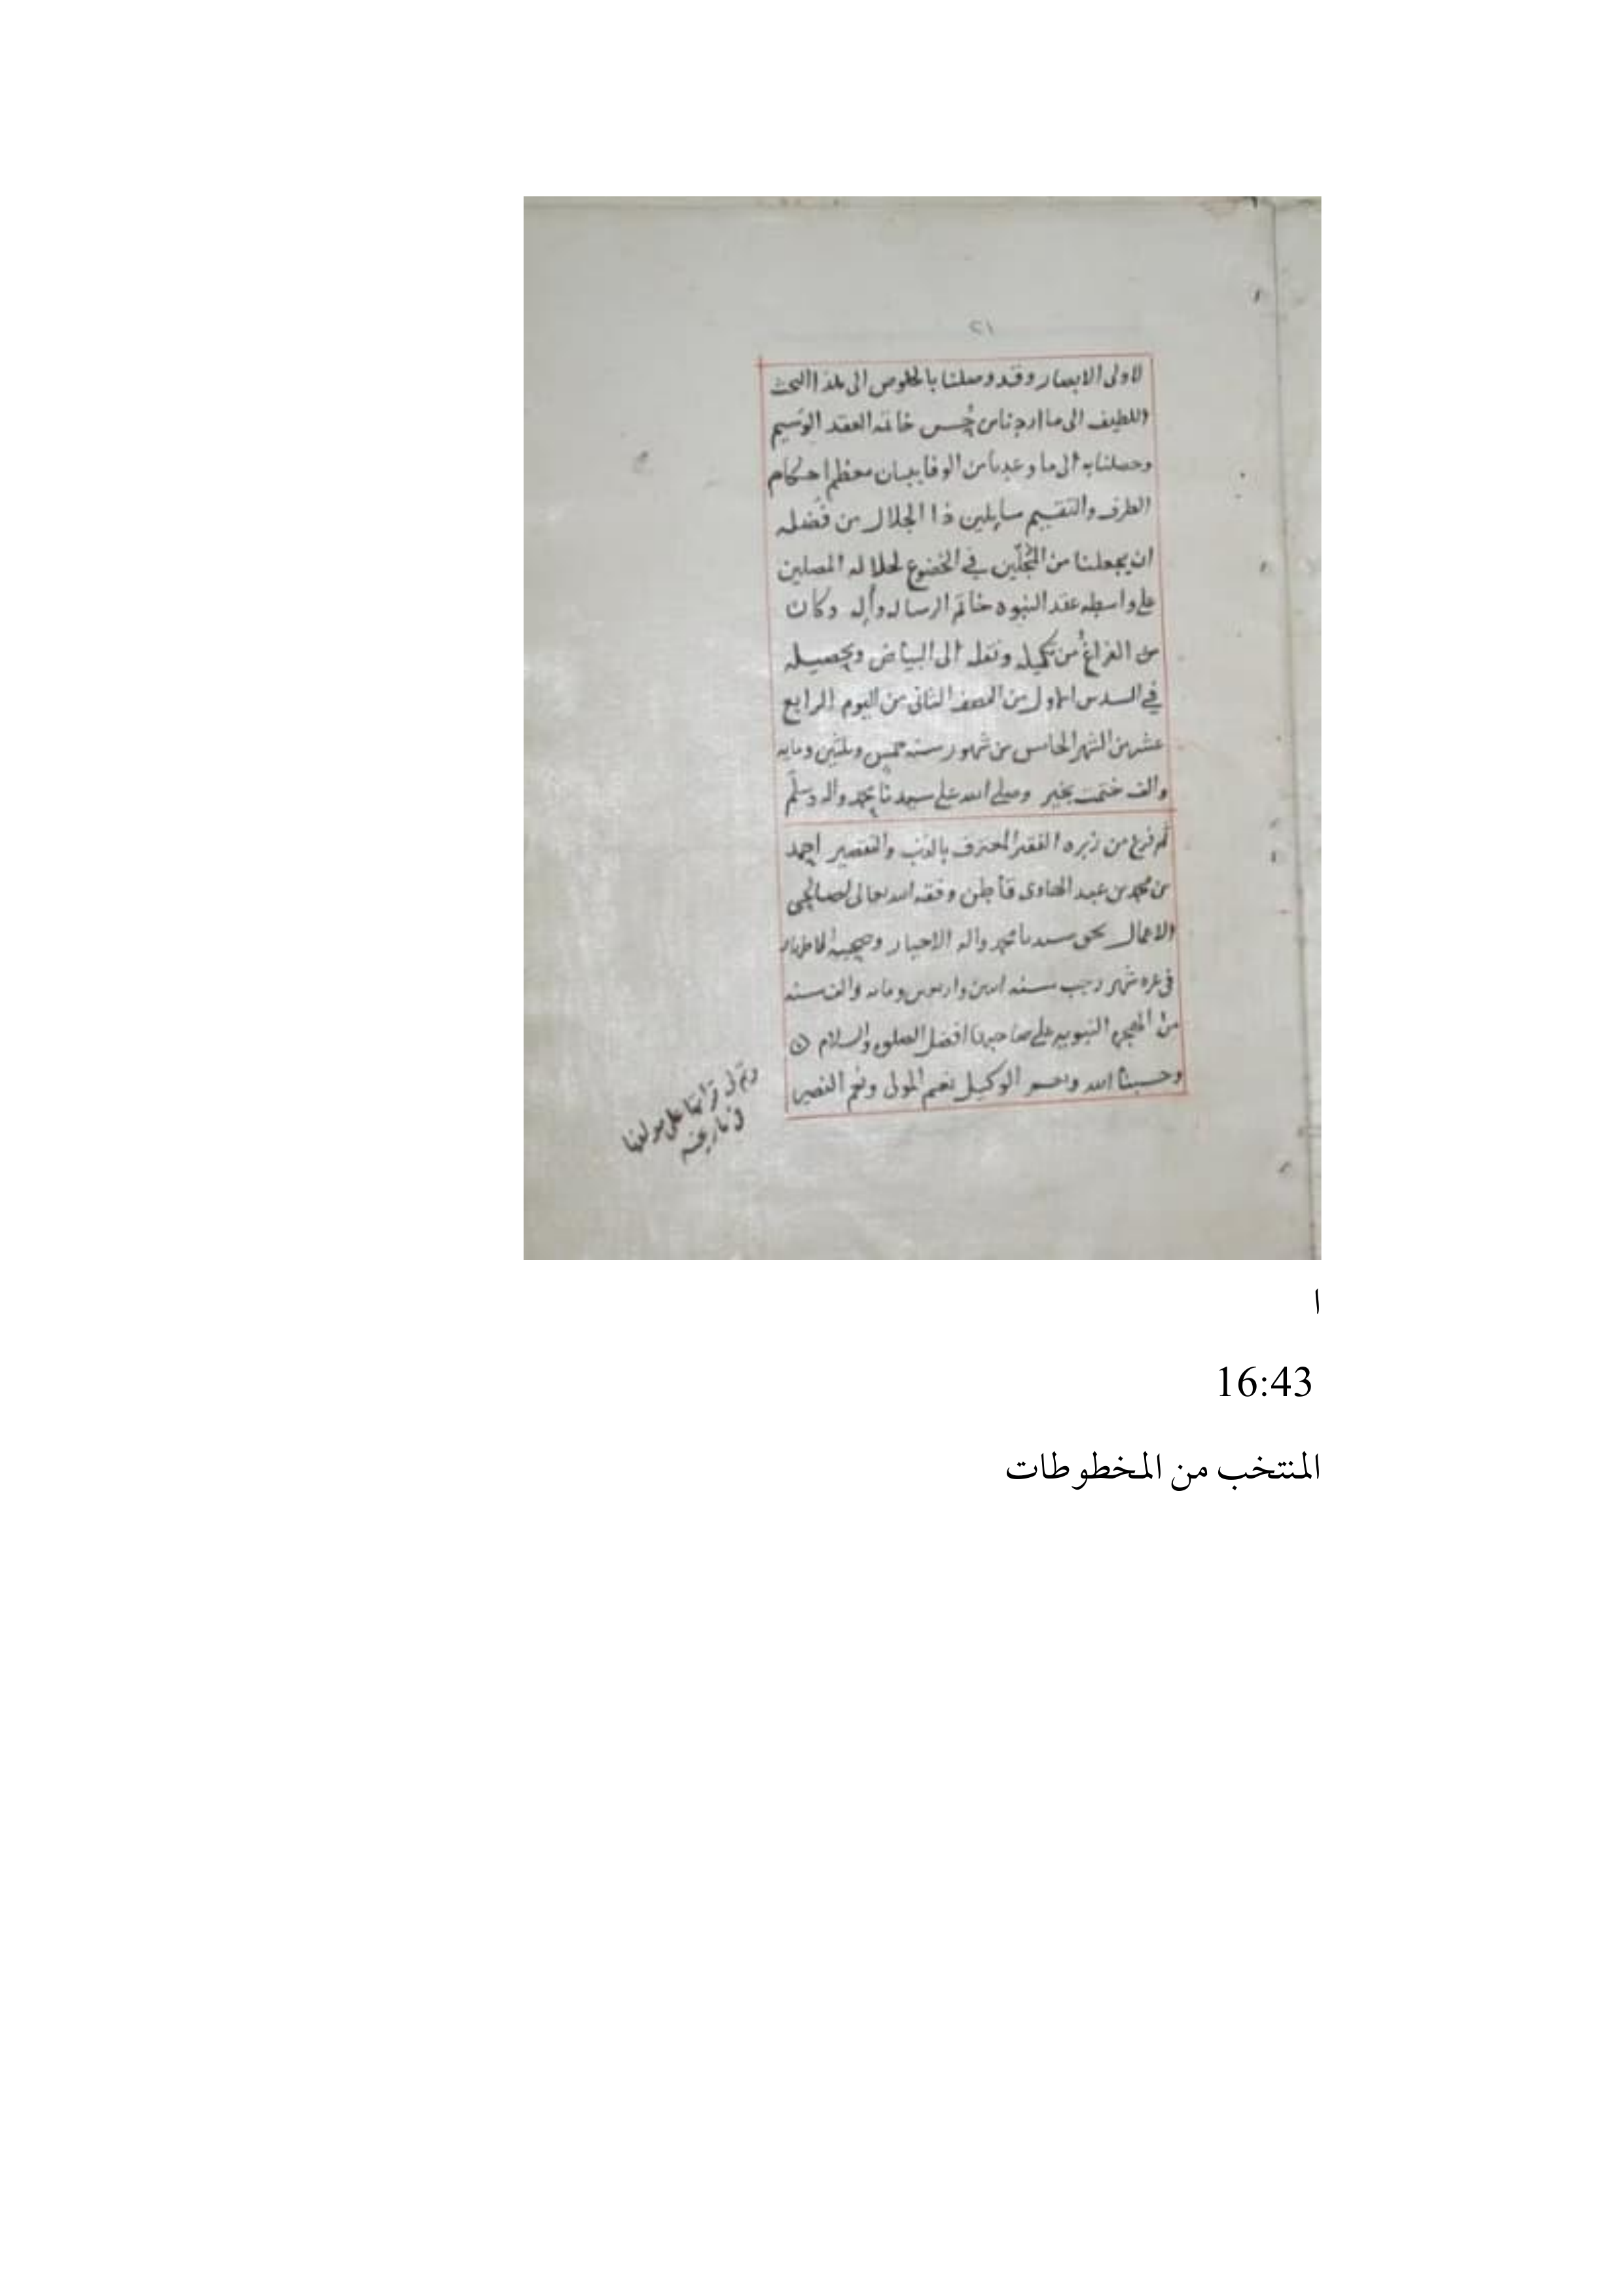 ١٢
لاولى الابصار وقد وصلنا بالخلوص الى هذا البحث
اللطيف الى ما اردنا من حُسن خاتمه العقد الوَسيم
وحصلنا به الى ما وعدنا من الوفا ببيان معظم احكام
الطرف والتقسيم سايلين ذا الجلال من فضله
ان يجعلنا من المُجلّين في الخضوع لجلاله المصلين
على واسطه عقد النبوه خاتم الرساله وآله وكان
من الفراغ من تكميله ونقله الى البياض وتحصيله
في السدس الاول من النصف الثاني من اليوم الرابع
عشر من الشهر الخامس من شهور سنه خمس وثلثين ومايه
والف ختمت بخير وصلى الله على سيدنا محمد واله وسلم
ثم فرغ من زبره الفقير المعترف بالذنب والتقصير احمد
بن محمد بن عبد الهادى قاطن وفقه الله تعالى لصالحى
الاعمال بحق سيدنا محمد واله الاخيار وصحبه
فى غره شهر رجب سنه اثنين واربعين ومايه والف سنه
من الهجره النبويه على صاحبها افضل الصلوه والسلام
وحسبنا الله ونعم الوكيل نعم المولى ونعم النصير
وتم لى قرائتها على مولفها
فى تاريخه
ا
16:43
المنتخب من المخطوطات